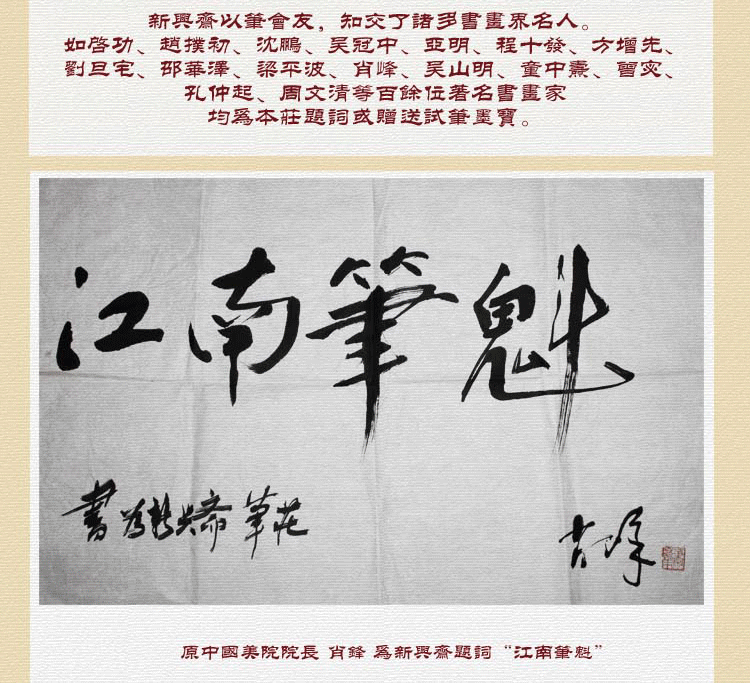 新興齋以筆會友，知交了諸多書畫界名人。
如啓功、趙撲初、沈鵬、吴冠中、亞明、程十發、方增先、
劉旦宅、邵華澤、梁平波、肖峰、吴山明、童中燾、曹宓、
孔仲起、周文清等百餘位著名書畫家
均爲本莊題詞或贈送試筆墨寶。
江南筆魁
書爲新興齋筆莊
肖峰
原中國美院院長 肖鋒 爲新興齋題詞“江南筆魁”